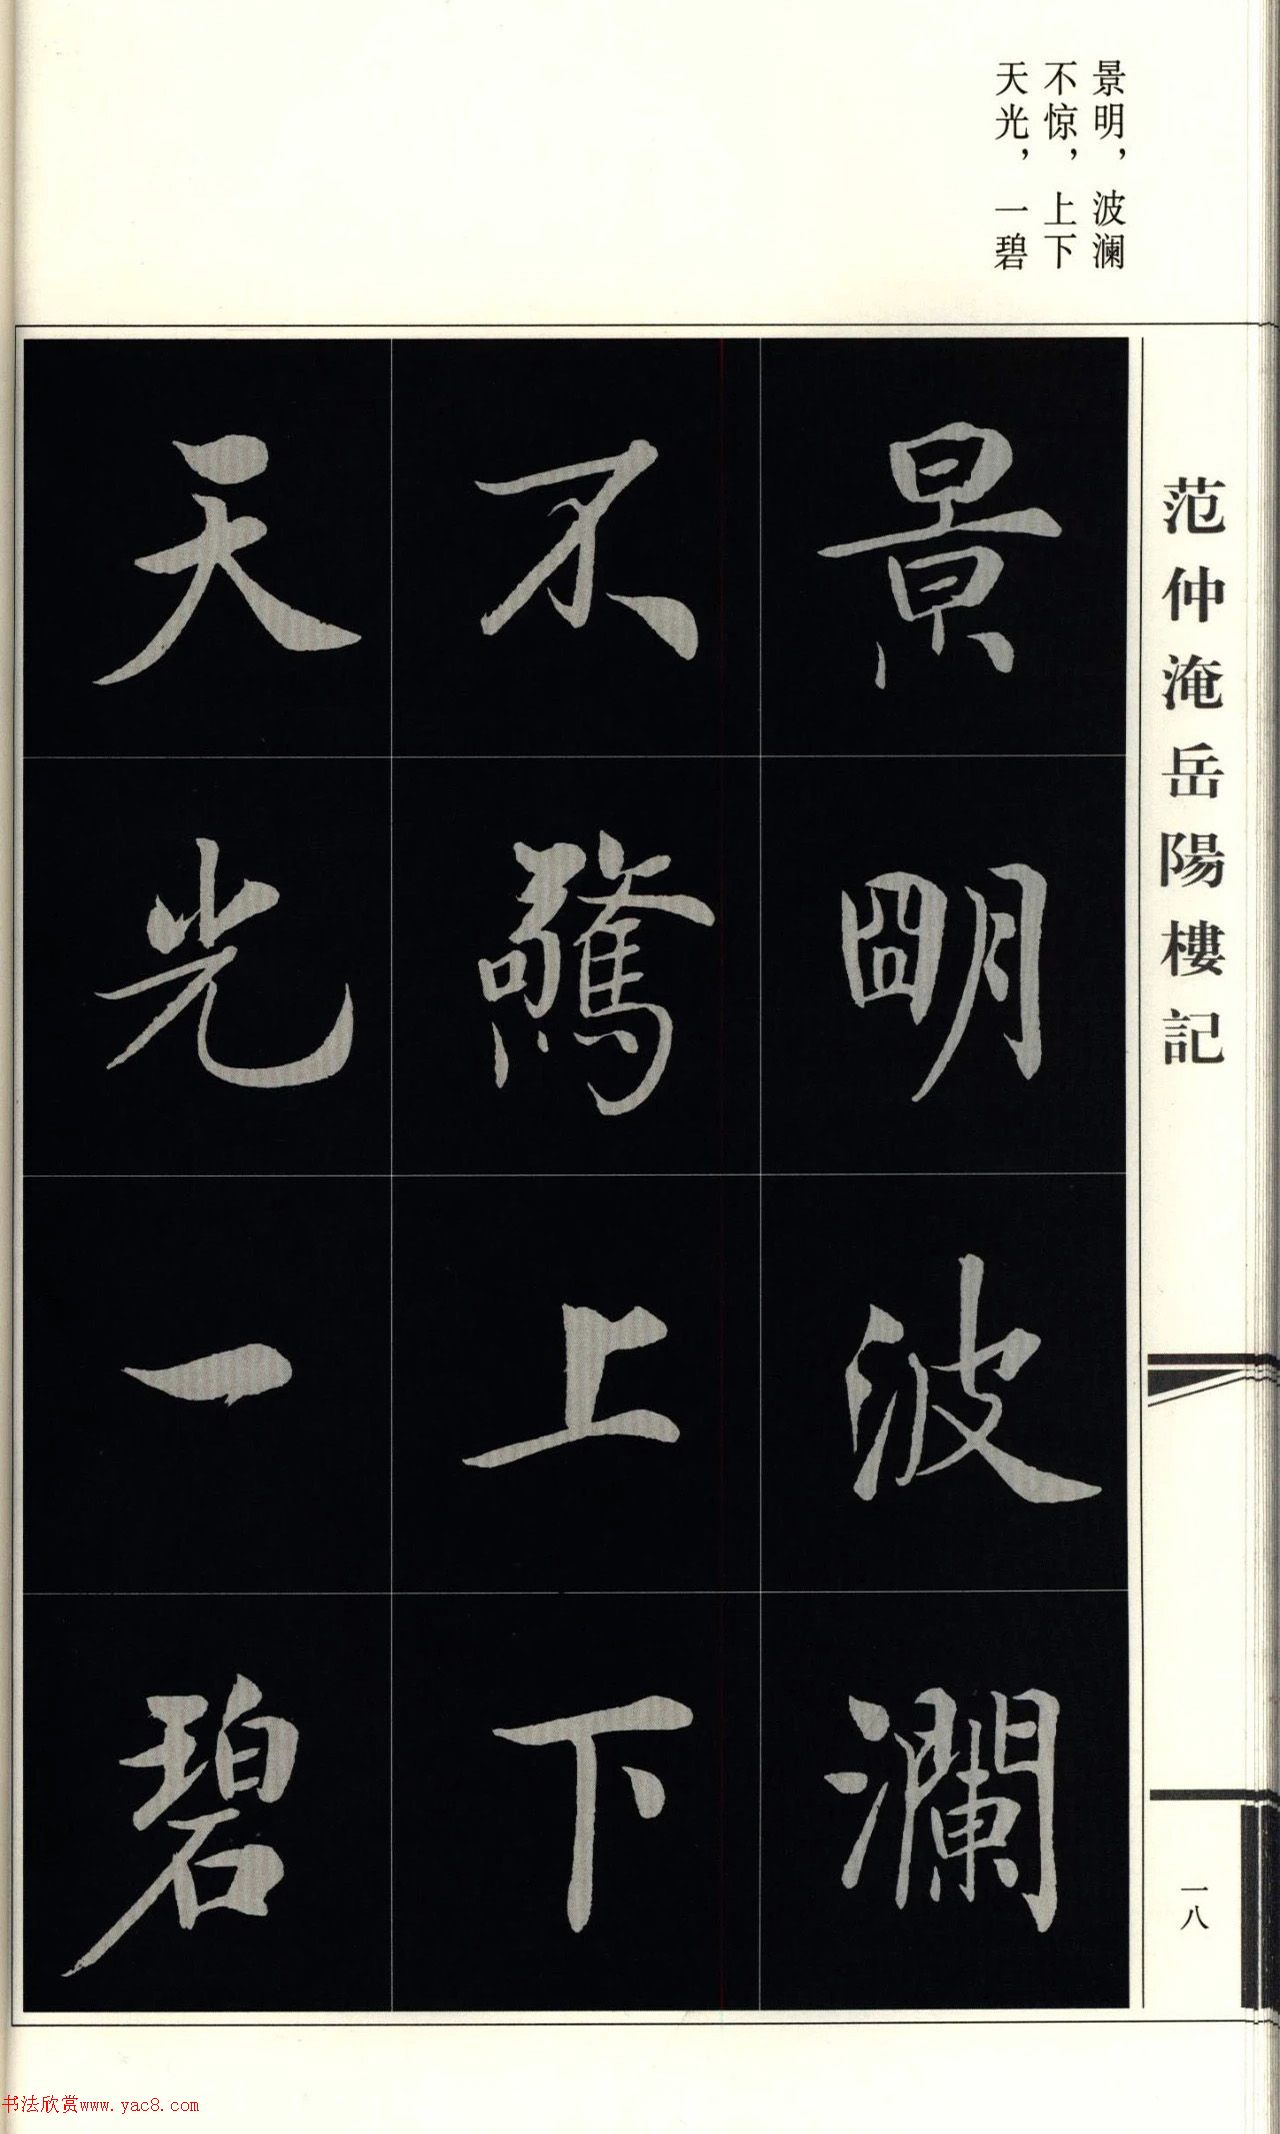 景明，波澜
不惊，上下
天光，一碧
范仲淹岳陽樓記
景明波瀾
不驚上下
天光一碧
一八
书法欣赏www.yac8.com